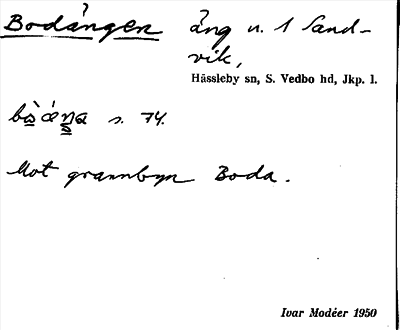 Bodängen äng u. 1 Sand-
vik,
Hässleby sn, S. Vedbo hd, Jkp. l.
s. 74.
Mot grannbyn Boda.
Ivar Modéer 1950